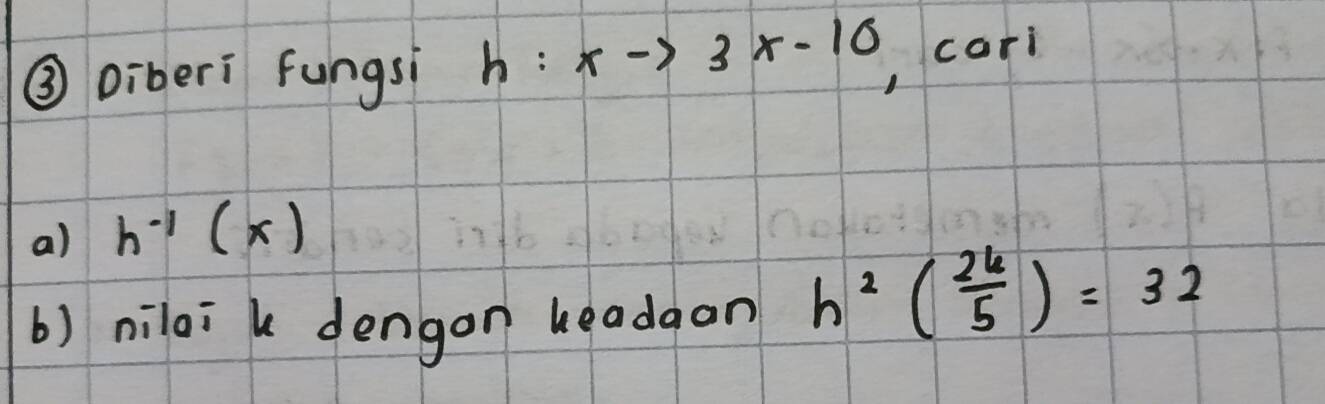 ③ Diberi fungsi h : x -> 3x-10, cari
a) h⁻¹ (x)
b) nilai k dengan keadaan h² (2k/5) = 32